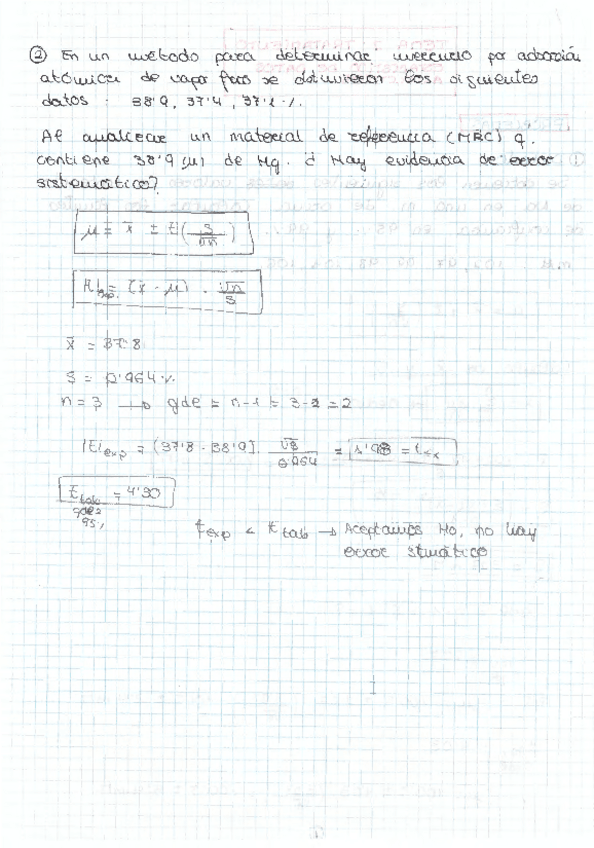 ② En un método para determinar mercurio por adsorción
atómica de vapor frio se obtuvieron los siguientes
datos : 38'9, 37'4, 37'1 %.
Al analizar un material de referencia (MRC) q.
contiene 38'9 (μ) de Hg. ¿ Hay evidencia de error
sistemático?
μ = x̄ ± t (s/√n)
|t|exp. = (x̄ - μ) . √n/s
x̄ = 37'8
S = 0'964 %
n = 3 → gde = n-1 = 3-1 = 2
|t|exp = (37'8 - 38'9). √3/0'964 = 1'98 = tex
t tab = 4'30
gde2
95%
t exp < t tab → Aceptamos Ho, no hay
error stmático